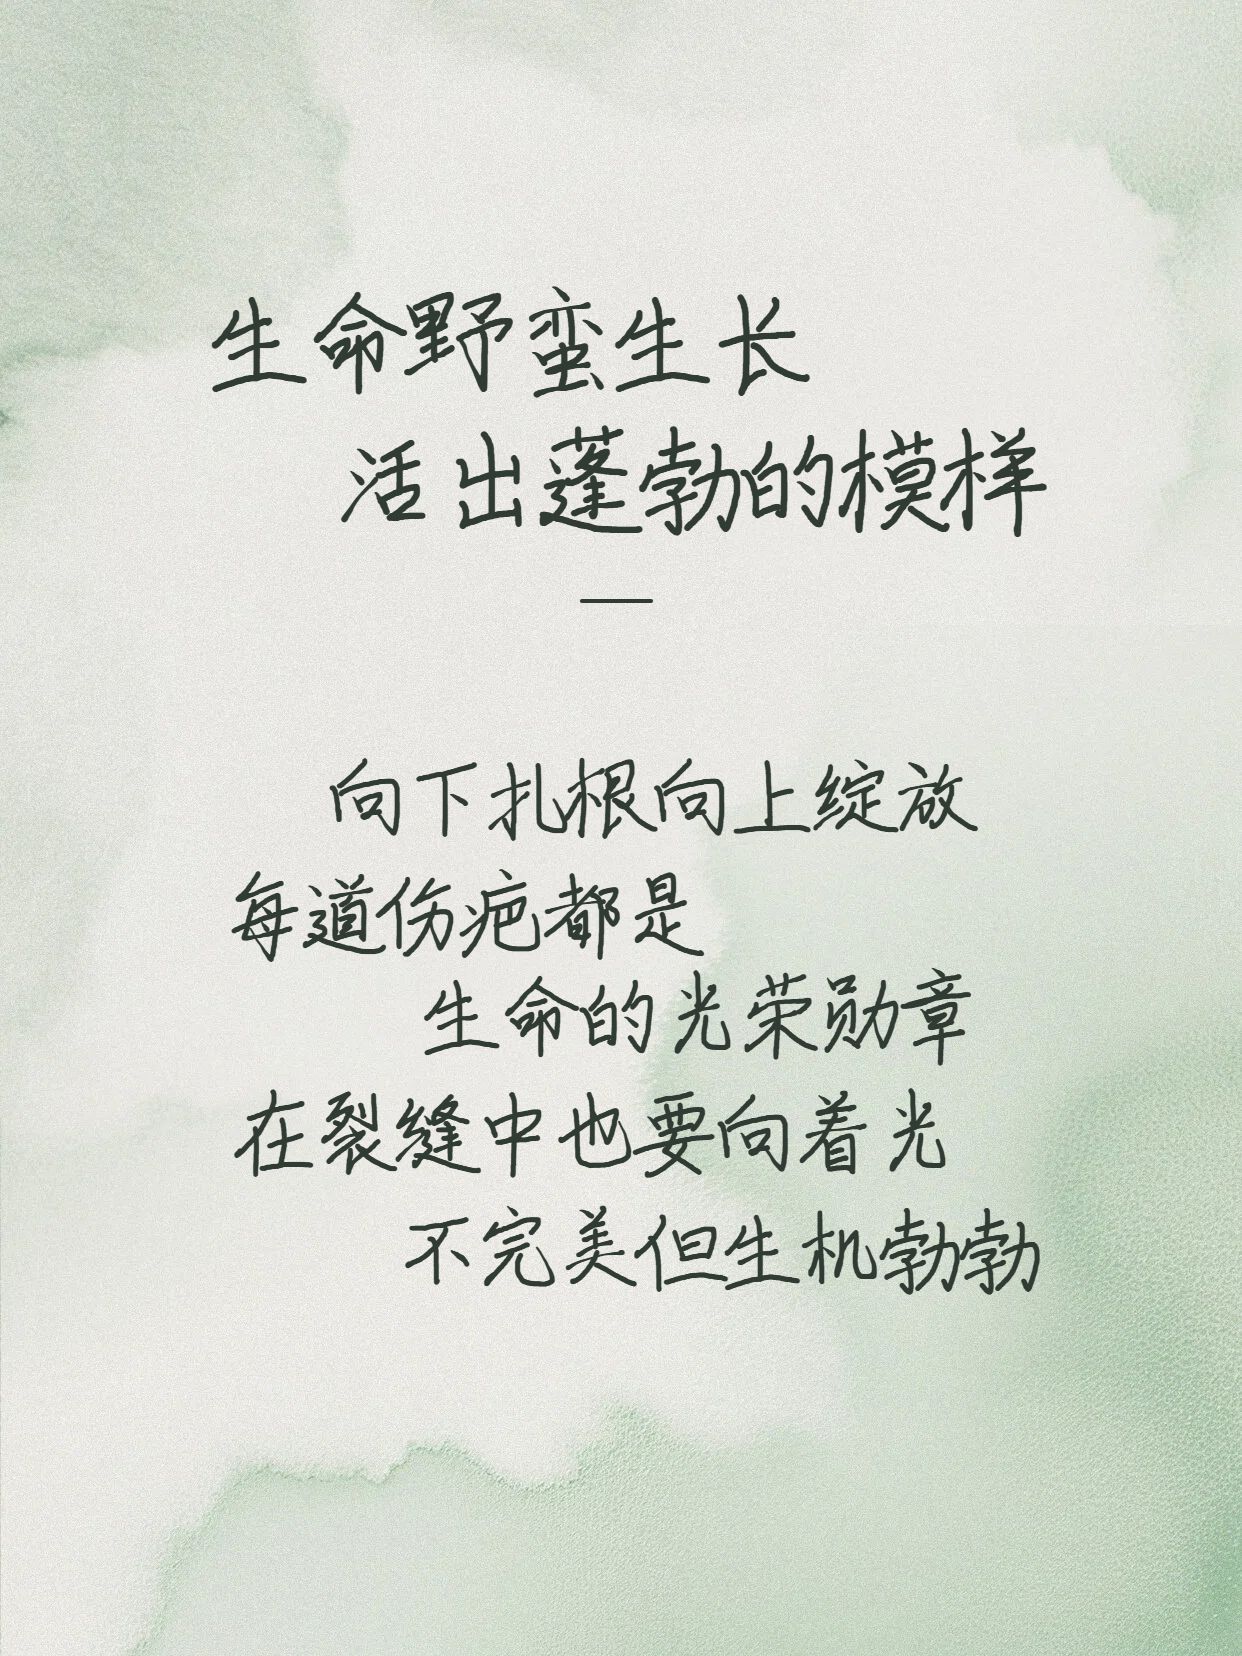 生命野蛮生长
活出蓬勃的模样
向下扎根向上绽放
每道伤疤都是
生命的光荣勋章
在裂缝中也要向着光
不完美但生机勃勃